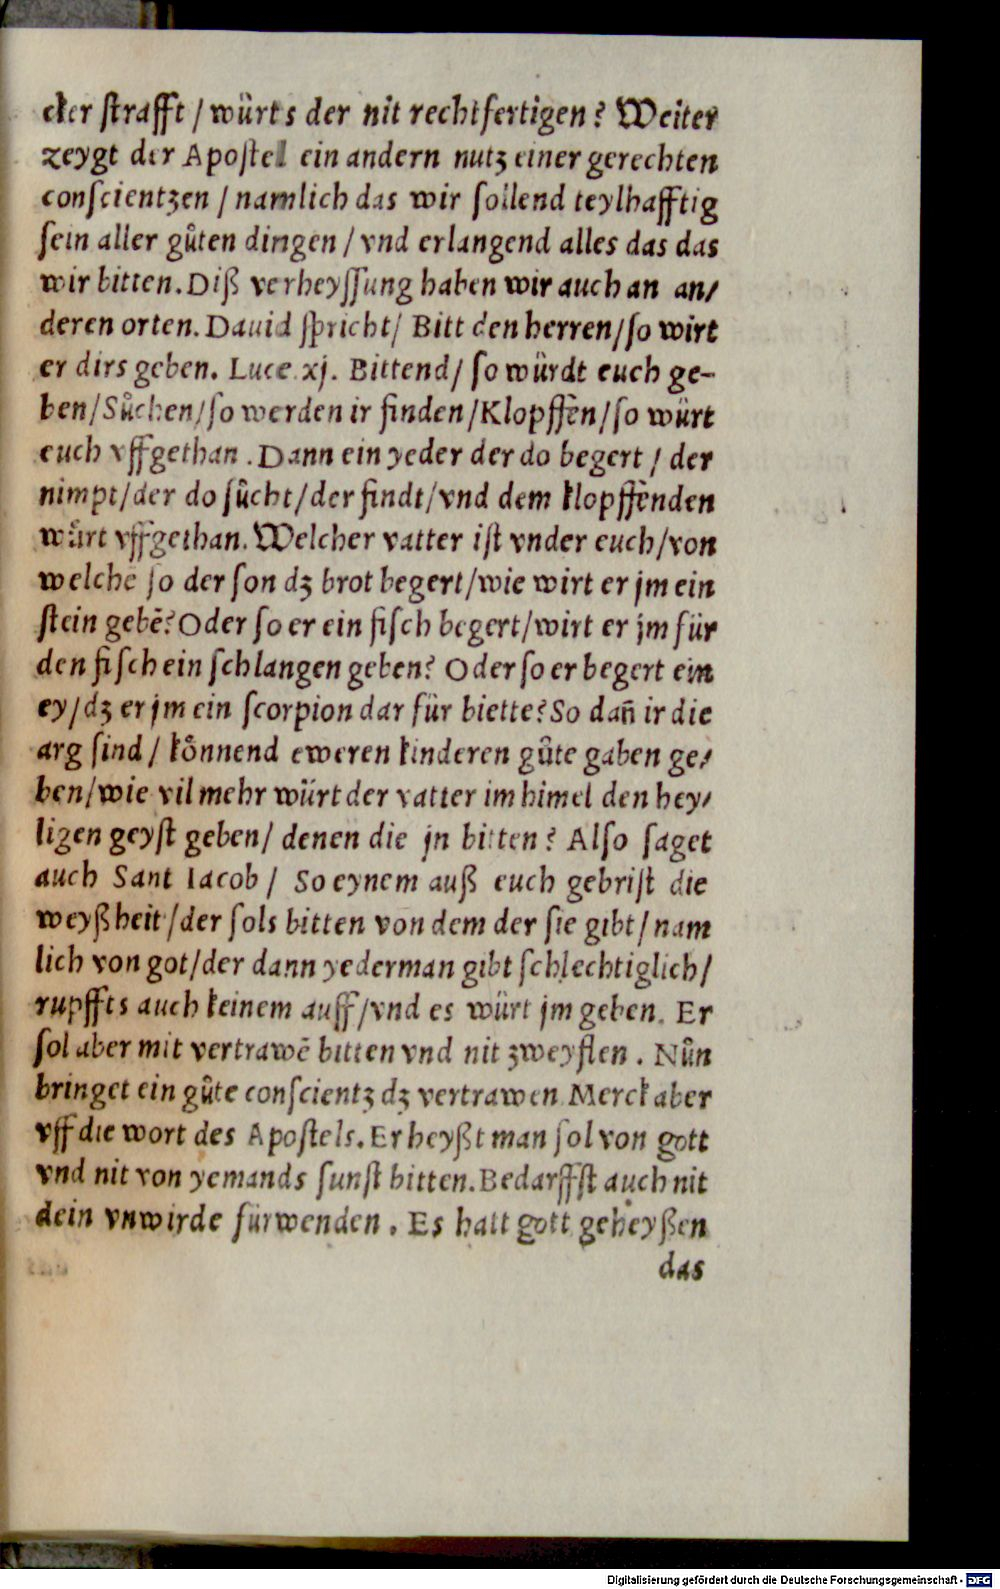 der strafft / würts der nit rechtfertigen? Weiter
zeygt der Apostel ein andern nutz einer gerechten
conscientzen / namlich das wir sollend teylhafftig
sein aller gůten dingen / vnd erlangend alles das das
wir bitten. Diß verheyssung haben wir auch an an/
deren orten. Dauid spricht/ Bitt den herren/so wirt
er dirs geben. Luce xj. Bittend/ so würdt euch ge-
ben/Sůchen/so werden ir finden/Klopffen/so würt
euch vffgethan. Dann ein yeder der do begert / der
nimpt/der do sůcht/der findt/vnd dem klopffenden
würt vffgethan. Welcher vatter ist vnder euch/von
welchē so der son dz brot begert/wie wirt er jm ein
stein gebē? Oder so er ein fisch begert/wirt er jm für
den fisch ein schlangen geben? Oder so er begert ein
ey/dz er jm ein scorpion dar für biette? So dañ ir die
arg sind / kőnnend eweren kinderen gůte gaben ge/
ben/wie vil mehr würt der vatter im himel den hey/
ligen geyst geben/ denen die jn bitten? Also saget
auch Sant Iacob / So eynem auß euch gebrist die
weyßheit/der sols bitten von dem der sie gibt/nam
lich von got/der dann yederman gibt schlechtiglich/
rupffts auch keinem auff/vnd es würt jm geben. Er
sol aber mit vertrawē bitten vnd nit zweyflen. Nůn
bringet ein gůte conscientz dz vertrawen Merck aber
vff die wort des Apostels. Er heyßt man sol von gott
vnd nit von yemands sunst bitten. Bedarffst auch nit
dein vnwirde fürwenden. Es hatt gott geheyßen
das
Digitalisierung gefördert durch die Deutsche Forschungsgemeinschaft - DFG